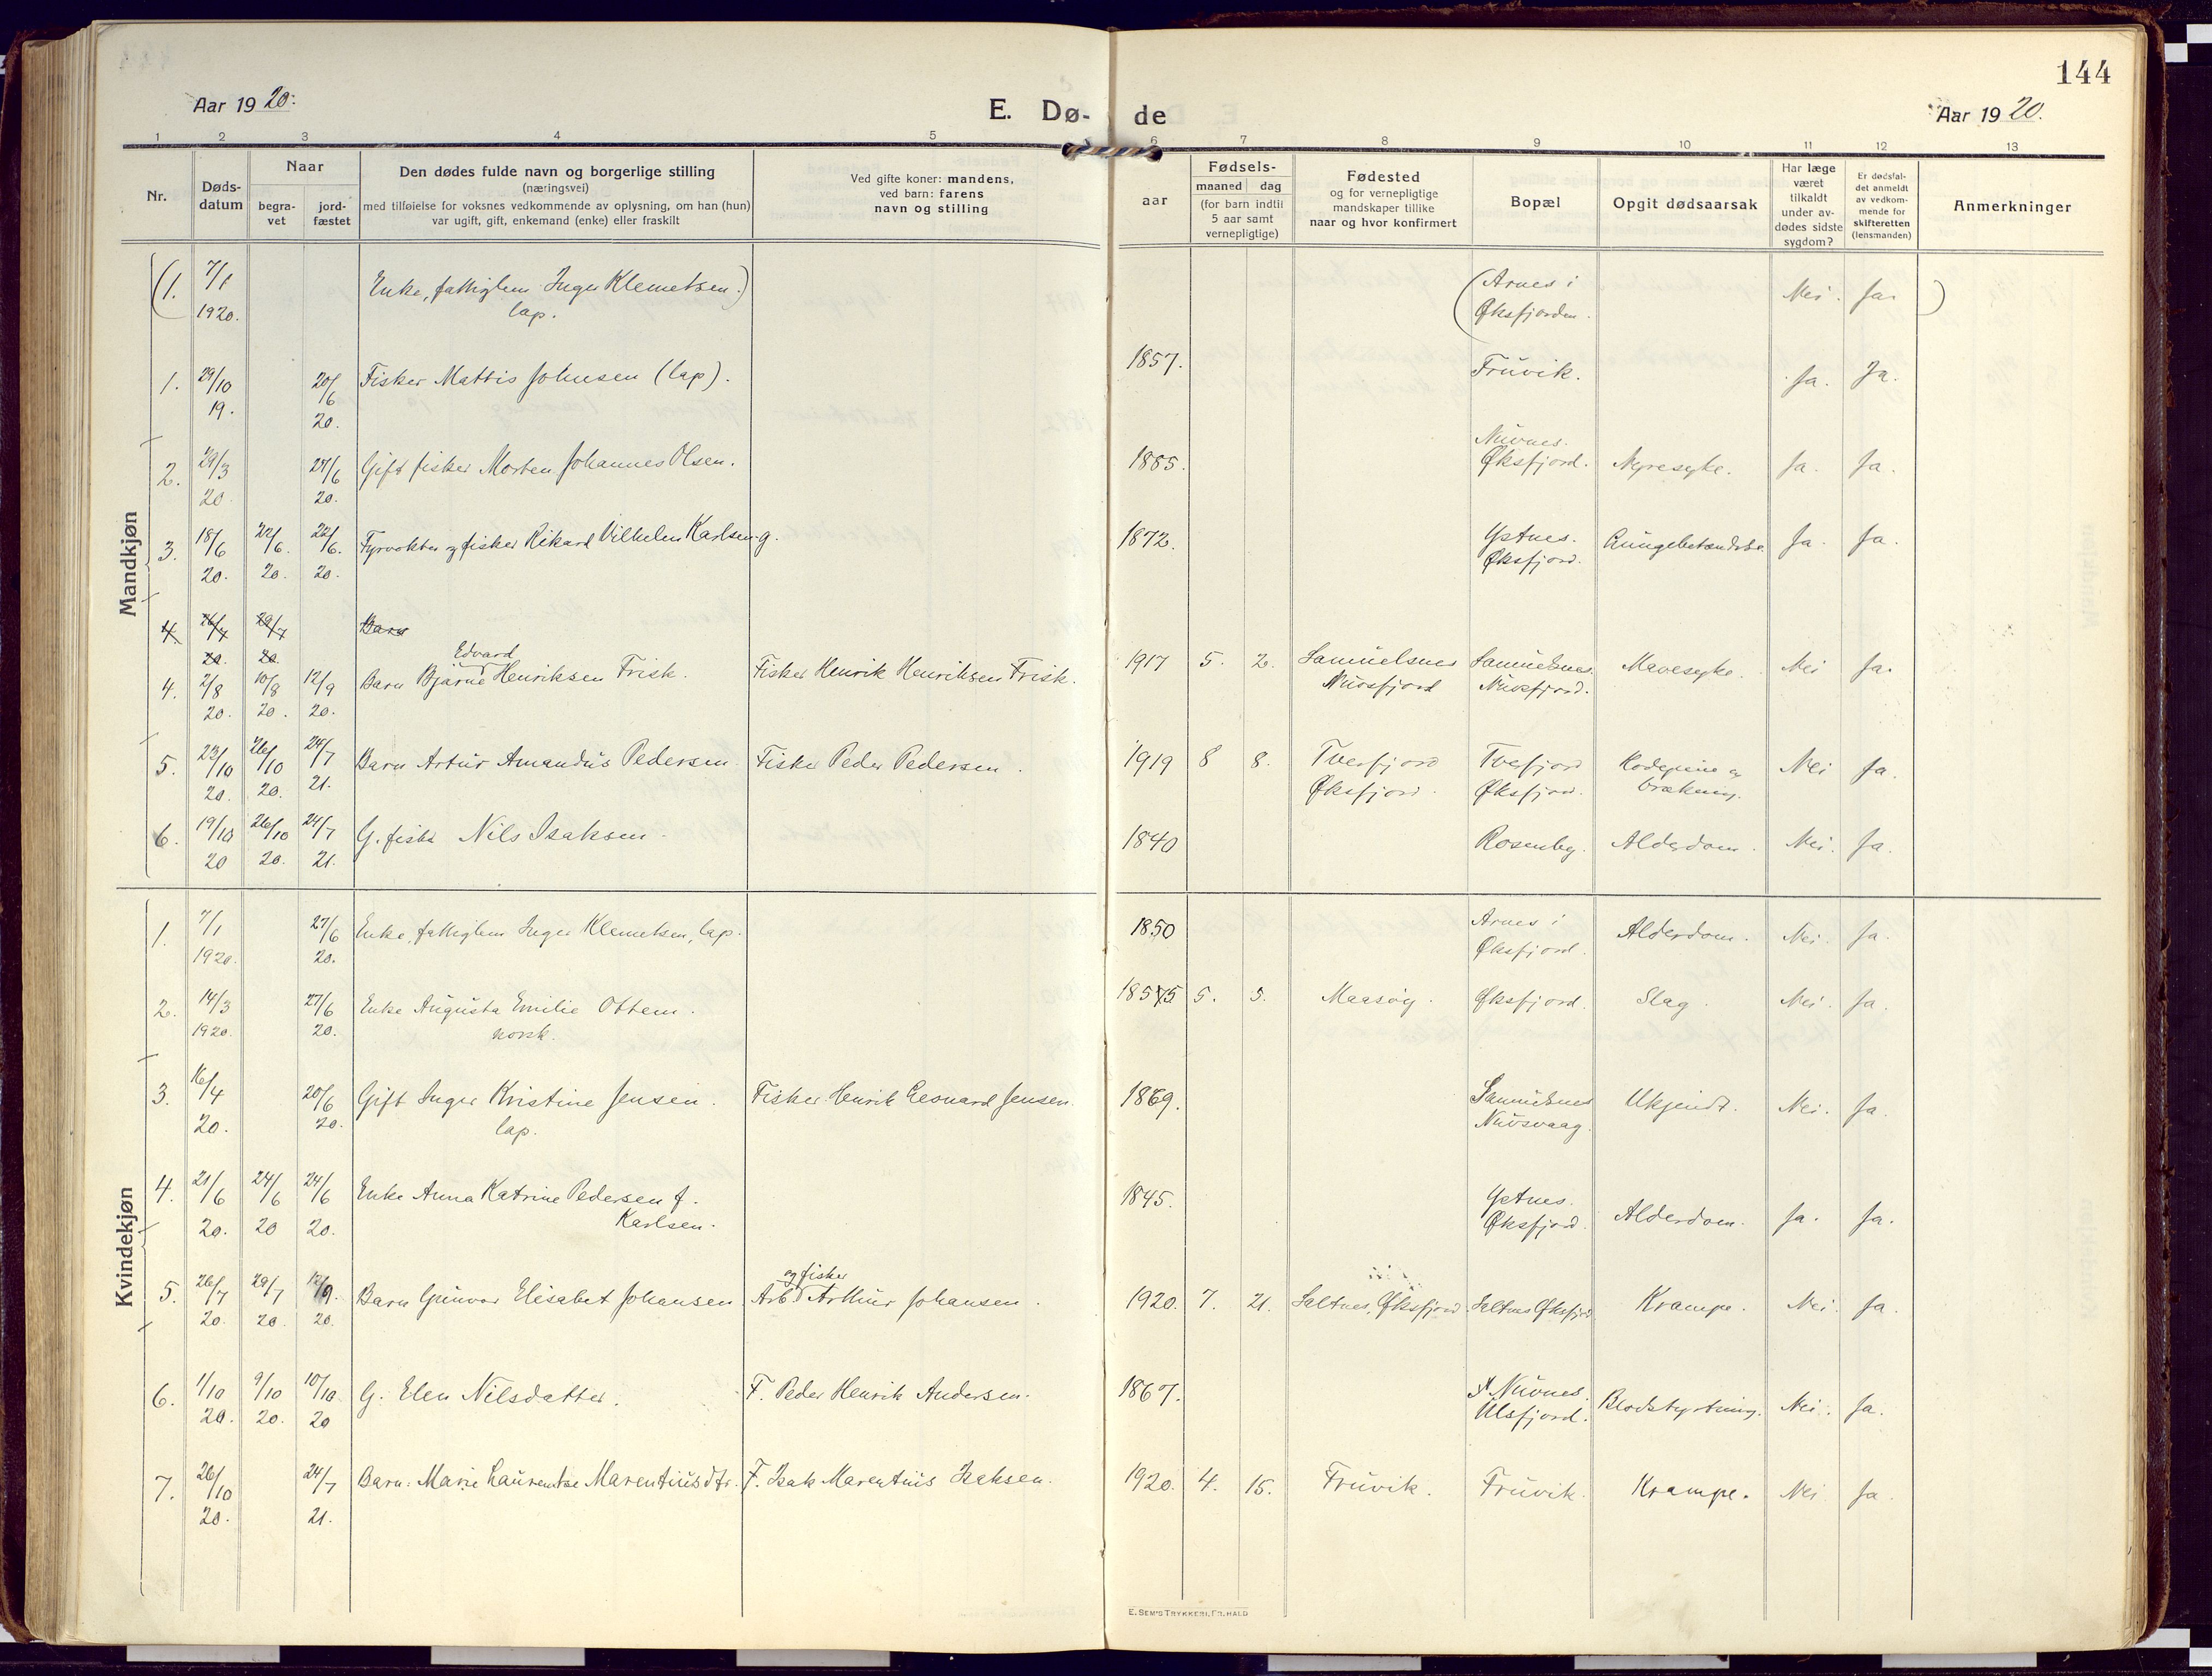 144
Aar 1920.
E. Dø-
de
Aar 1920.
1 2 3 4 5 6 7 8 9 10 11 12 13
Nr.
Døds-
datum
Naar
begra-
vet
jord-
fæstet
Den dødes fulde navn og borgerlige stilling
(næringsvei)
med tilføielse for voksnes vedkommende av oplysning, om han (hun)
var ugift, gift, enkemand (enke) eller fraskilt
Ved gifte koner: mandens,
ved barn: farens
navn og stilling
aar
Fødsels-
maaned dag
(for barn indtil
5 aar samt
vernepligtige)
Fødested
og for vernepligtige
mandskaper tillike
naar og hvor konfirmert
Bopæl
Opgit dødsaarsak
Har læge
været
tilkaldt
under av-
dødes sidste
sygdom?
Er dødsfal-
det anmeldt
av vedkom-
mende for
skifteretten
(lensmanden)
Anmerkninger
Mandkjøn
(1. 7/1 Enke, fattiglem Inger Klemetsen.) (Arnes i Nei. Ja. )
1920. lap. Øksfjorden.
1. 29/10 20/6 Fisker Mattis Johnsen (lap). 1857. Früvik. Ja. Ja.
19. 20.
2. 29/3 27/6 Gift fisker Morten Johannes Olsen. 1885. Nüvnes. Øksfjord. Nyresyke. Ja. Ja.
20. 20.
3. 18/6 22/6. 22/6. Fyrvokter og fisker Rikard Vilhelm Karlsen g. 1872. Ystnes. Øksfjord. Lungebetændelse Ja. Ja.
20. 20. 20.
4. 26/7 29/7 Barn
20. 20.
Edvard
4. 2/8 10/8 12/9 Barn Bjarne Henriksen Frisk. Fisker Henrik Henriksen Frisk. 1917 5. 2. Samüelsnes Nüvsfjord Samüelsnes. Nüvsfjord. Mavesyke. Nei Ja.
20. 20. 20.
5. 23/10 26/10 24/7 Barn Artür Amandüs Pedersen Fisker Peder Pedersen. 1919 8 8. Tverfjord Øksfjord. Tverfjord Øksfjord. Hodepine og brækning. Nei Ja.
20. 20. 21.
6. 19/10 26/10 24/7 G. fisker Nils Isaksen. 1840 Rosenby. Alderdom. Nei. Ja.
20 20. 21.
Kvindekjøn
1. 7/1 27/6 Enke, fattiglem Inger Klemetsen, lap. 1850 Arnes i Øksfjord. Alderdom. Nei. Ja.
1920. 20.
2. 14/3 27/6 Enke Aügüsta Emilie Ottem. 1855 5. 5. Maasøy. Øksfjord. Slag. Nei. Ja.
1920. 20. norsk.
3. 16/4 20/6 Gift Inger Kristine Jensen. Fisker Henrik Leonard Jensen. 1869. Samüelsnes Nüvsvaag. Ukjendt. Nei. Ja.
20. 20. lap.
4. 21/6 24/6 24/6 Enke Anna Katrine Pedersen f. 1845. Ystnes. Øksfjord. Alderdom. Ja. Ja.
20. 20 20. Karlsen.
og fisker
5. 26/7 29/7 12/9. Barn Günvor Elisabet Johansen Arb. Arthür Johansen. 1920. 7. 21. Saltnes, Øksfjord. Saltnes Øksfjord Krampe. Nei. Ja.
20. 20. 20.
6. 1/10 9/10 10/10. G. Elen Nilsdatter. F. Peder Henrik Andersen. 1867. Nüvnes. Ulsfjord. Blodstyrtning. Nei. Ja.
20. 20. 20
7. 26/10 24/7 Barn: Marie Laürentse Marentiüsdtr. F. Isak Marentiüs Isaksen. 1920. 4. 15. Früvik. Früvik. Krampe. Nei Ja.
20. 21.
E. SEM'S TRYKKERI, FR.HALD